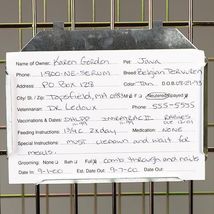 Name of Owner: Karen Gordon Pet: Java
Phone: 1-800-NE-SERUM Breed Belgian Tervuren
Address PO Box 128 Color: Tan DOB 08-21-93
City/St./Zip: Topsfield, MA 01983 M/F Neutered/Spayed
Veterinarian: Dr. LeDoux Phone: 555-5555
Vaccinations & Dates: DHLPP RABIES
Feeding Instructions: 1 3/4c 2xday Medication: NONE
Special Instructions must liedown and wait for
meals.
Grooming: None Bath Full comb through and nails
Date In 9-1-00 Est. Date Out 9-7-00 Date Out